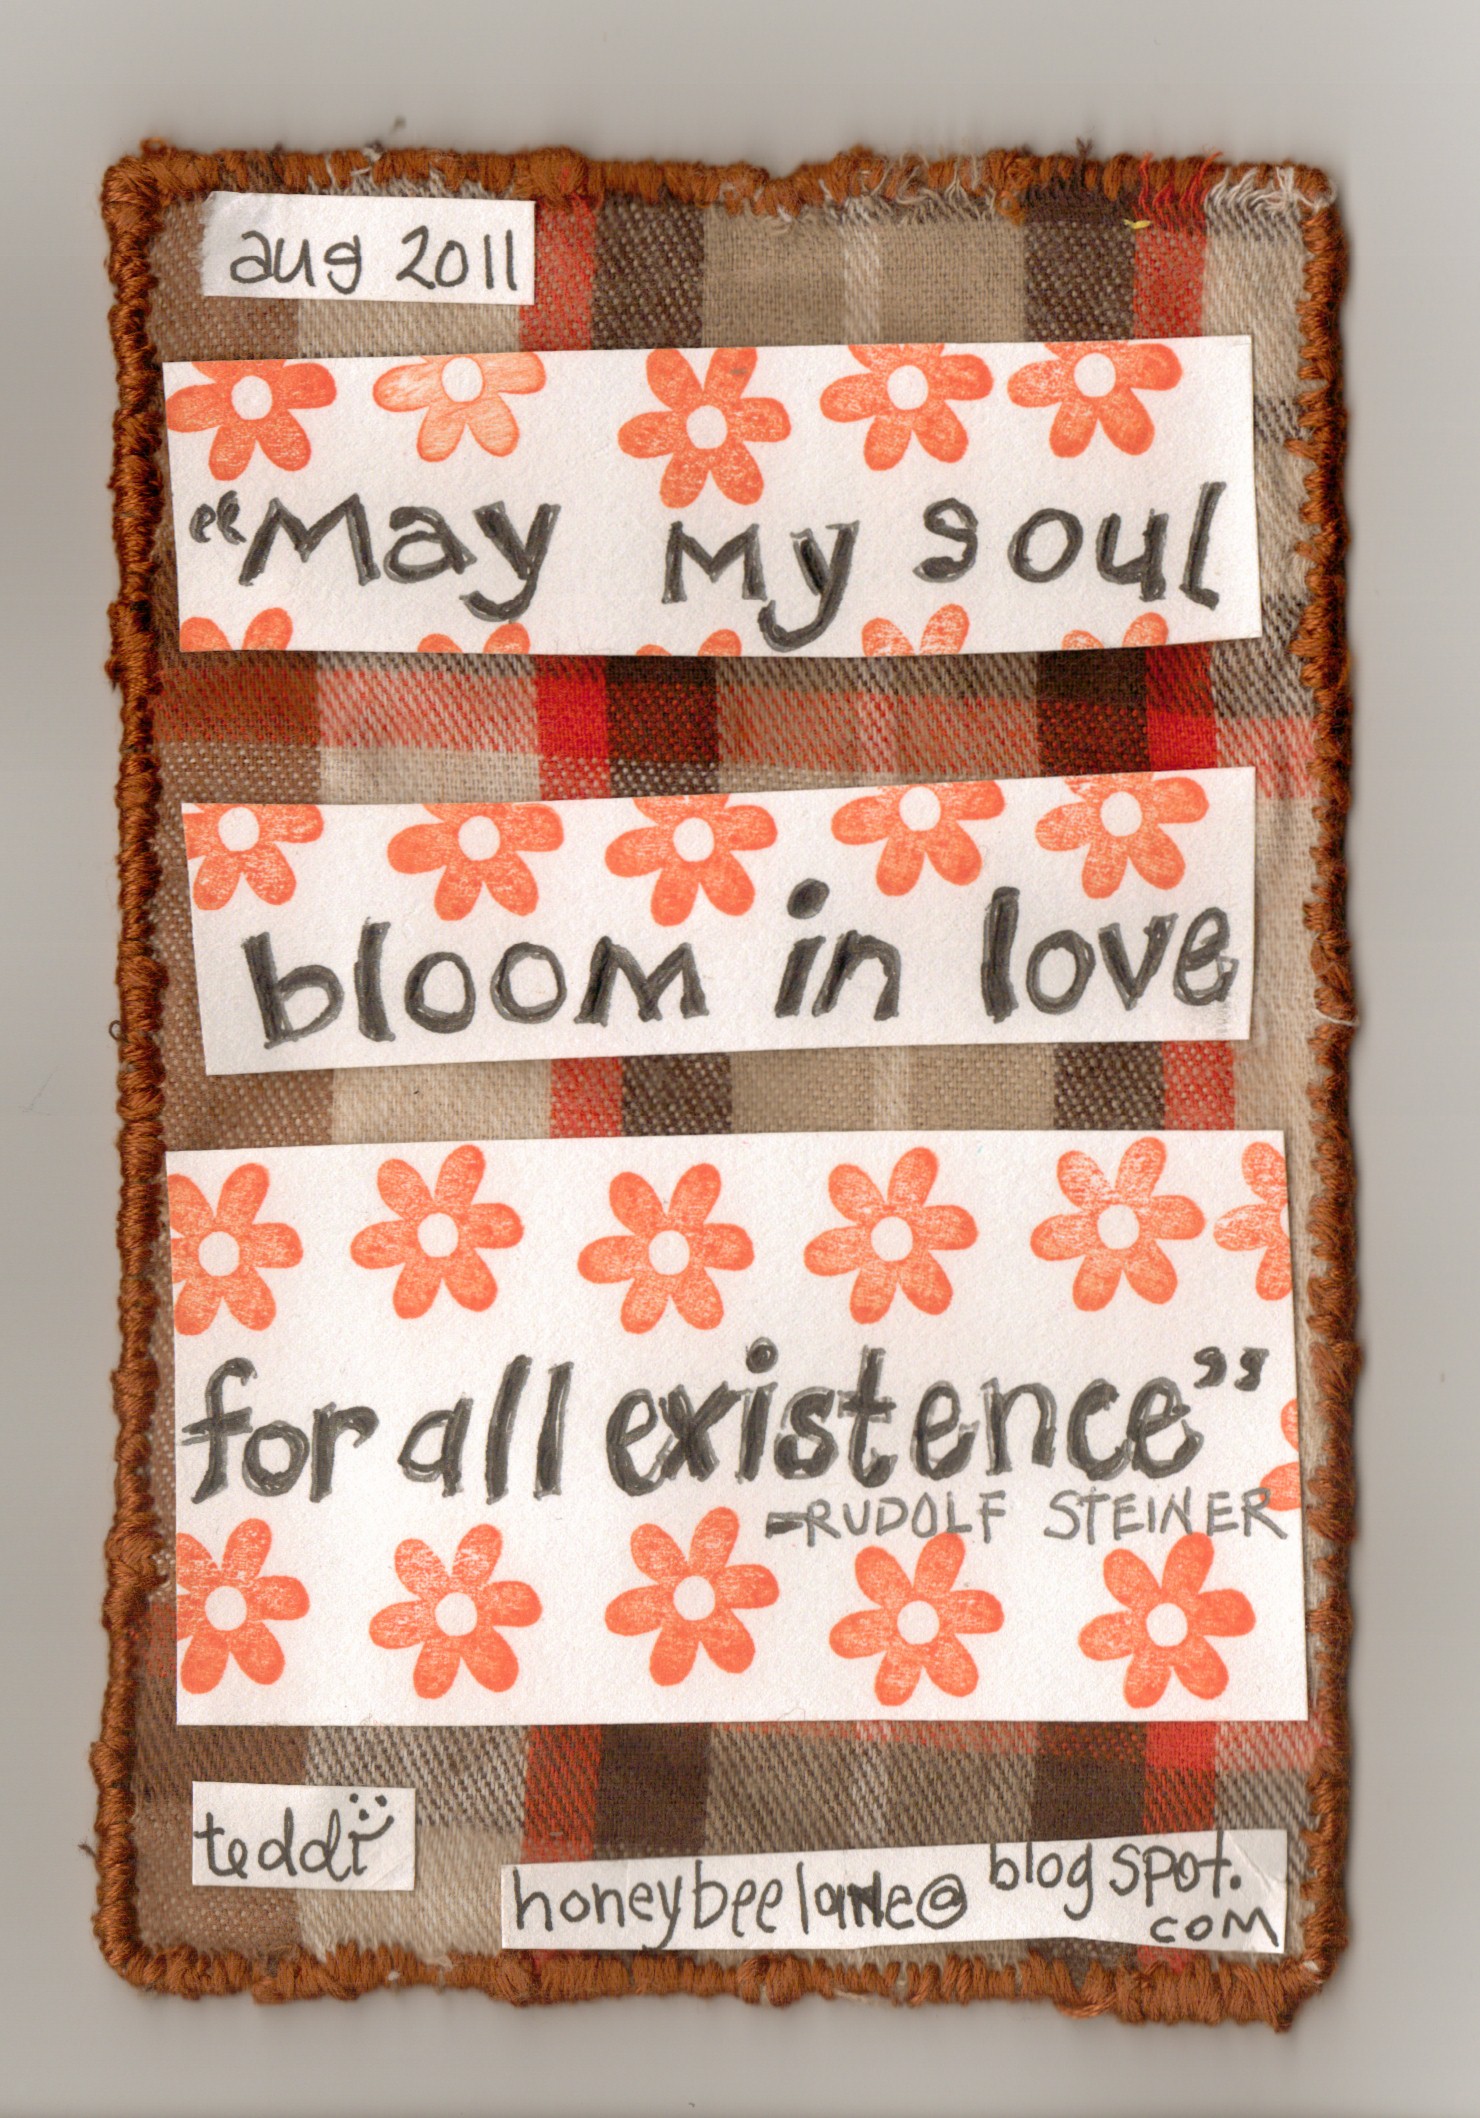 aug 2011
"May My soul
bloom in love
for all existence"
-RUDOLF STEINER
teddi
honeybeelane@blogspot.
com